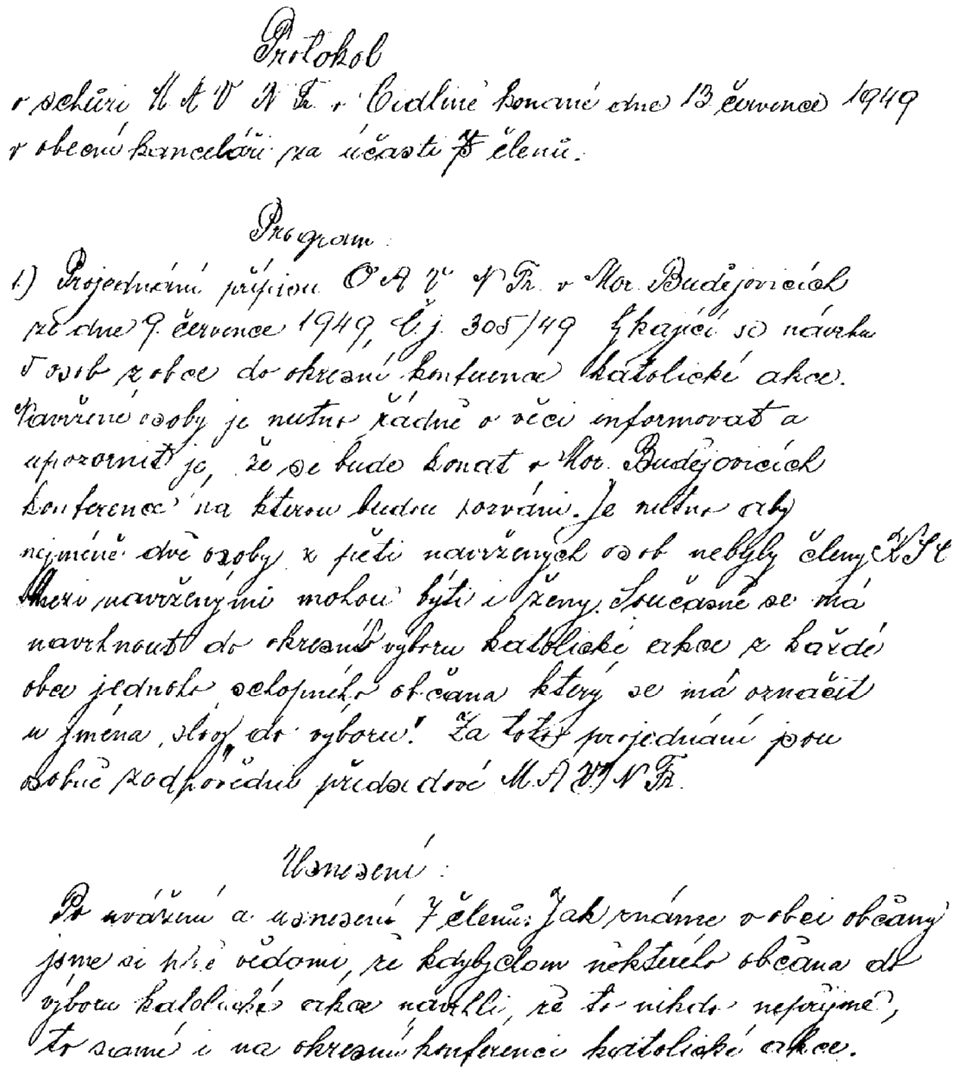 Protokol
o schůzi M A V N Fr. v Cidlině konané dne 13 července 1949
v obecní kanceláři za účasti 7 členů.
Program:
1.) Projednání přípisu O A V N Fr. v Mor. Budějovicích
ze dne 9. července 1949, Č.j. 305/49 týkající se návrhu
5 osob z obce do okresní konference katolické akce.
Navržené osoby je nutno řádně o věci informovat a
upozornit je, že se bude konat v Mor. Budějovicích
konference na kterou budou pozváni. Je nutno aby
nejméně dvě osoby z pěti navržených osob nebyly členy KSČ
Mezi navrženými mohou býti i ženy. Současně se má
navrhnout do okresního výboru katolické akce z každé
obce jednoho schopného občana který se má označit
u jména „slovy do výboru". Za toto projednání jsou
osobně zodpovědni předsedové M.A V N Fr.
Usnesení:
Po uvážení a usnesení 7 členů: Jak známe v obci občany
jsme si plně vědomi, že kdybychom některého občana do
výboru katolické akce navrhli, že to nikdo nepřijme,
to samé i na okresní konferenci katolické akce.